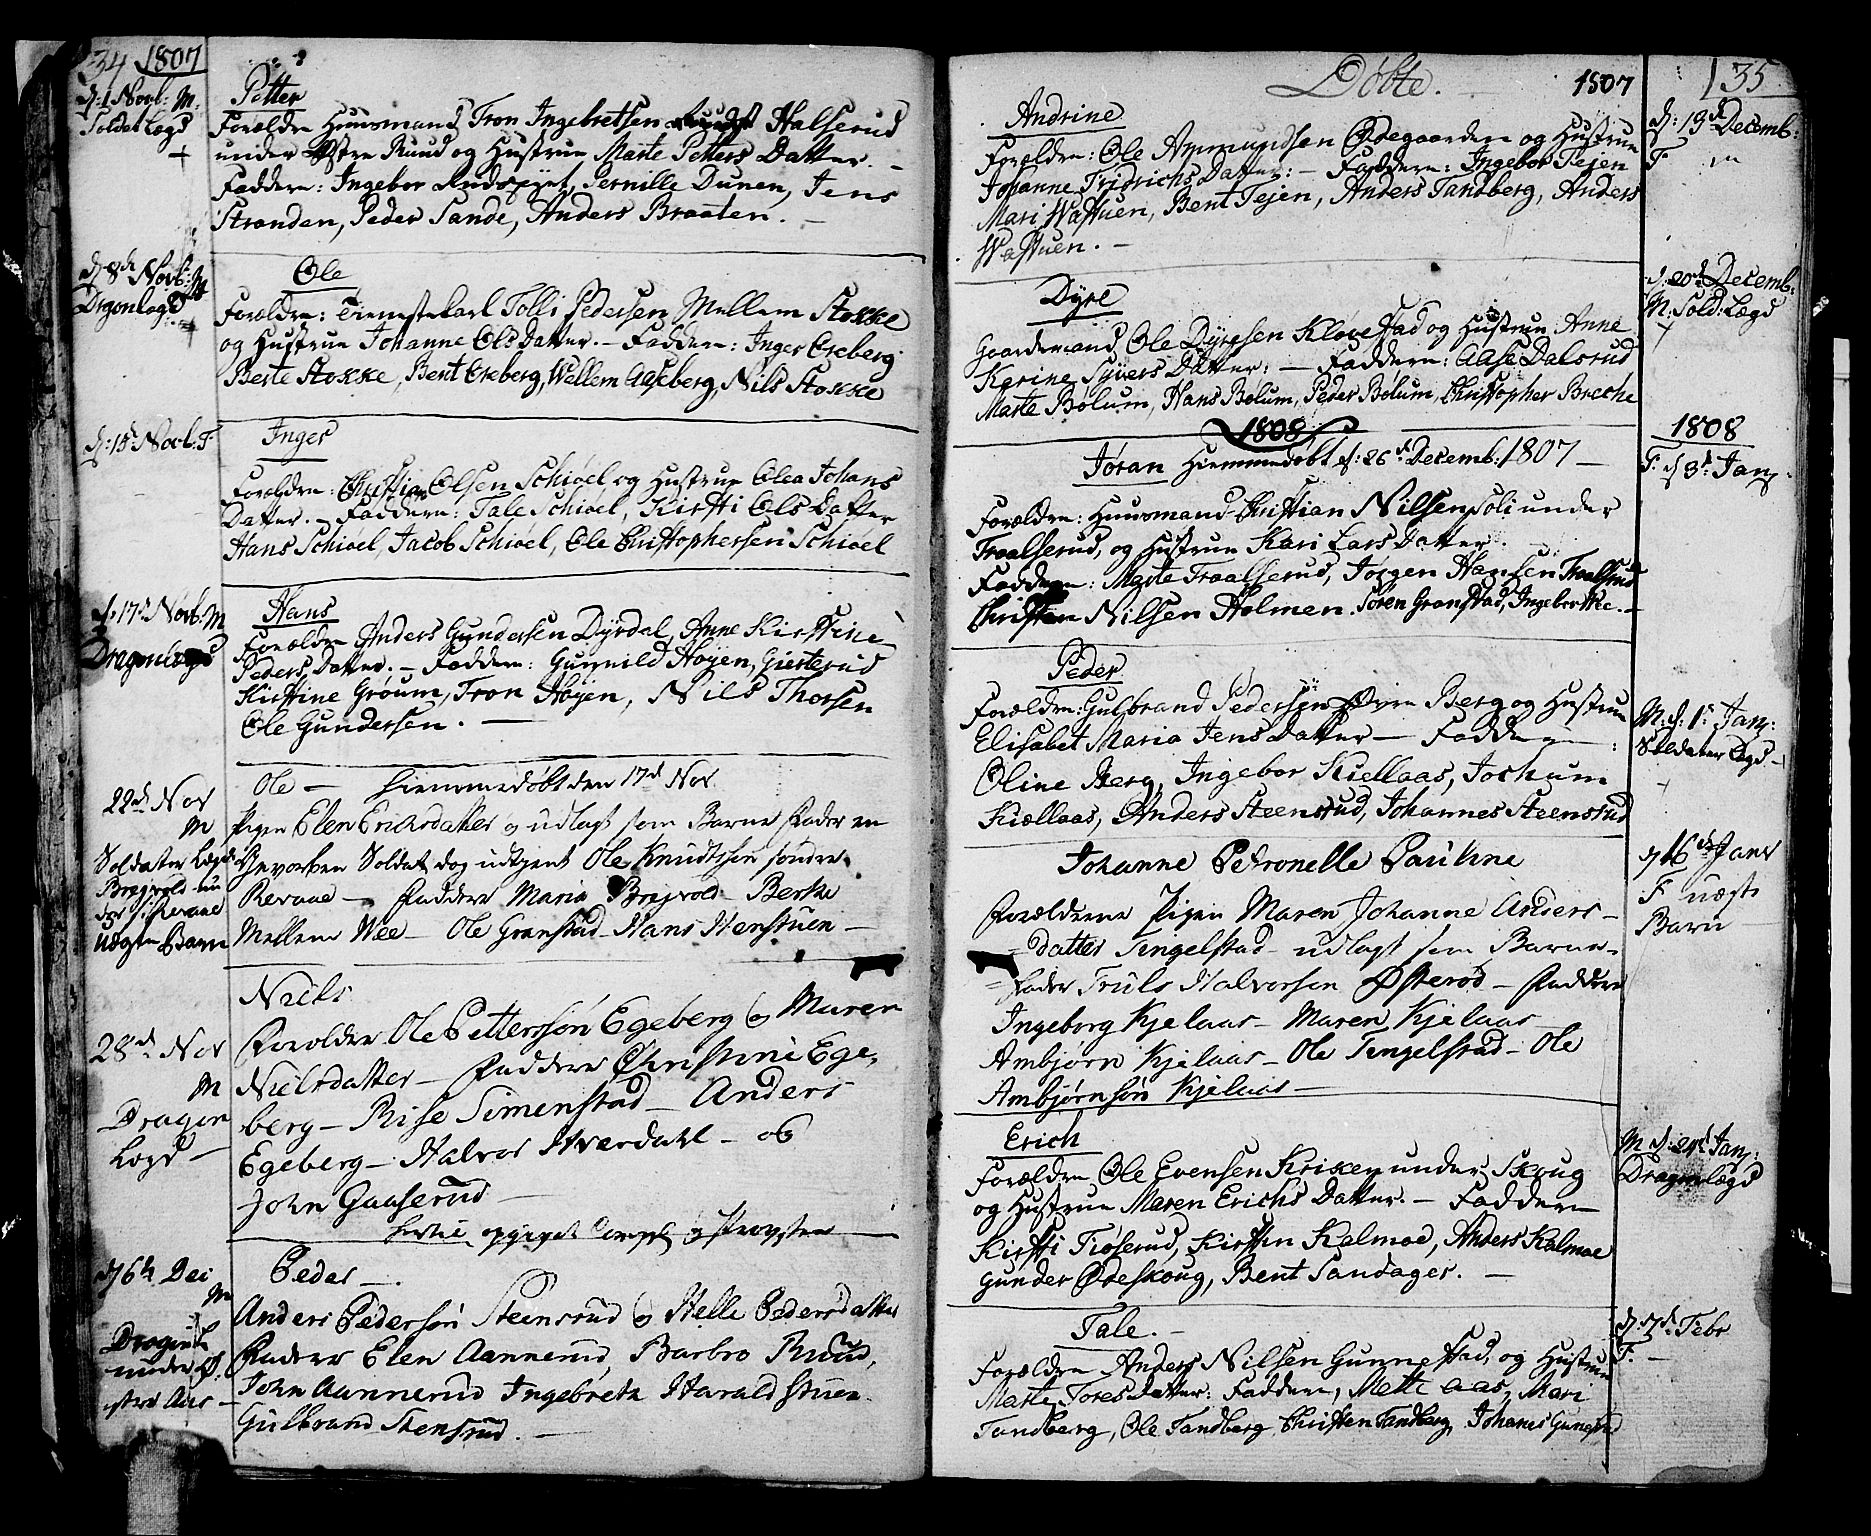 34 1807
d: 1 Novb: M:
Soldat Lægd
+
Petter
Forældre Huusmand Tron Ingebretsen Halserud
under Østre Ruud og Hustrue Marte Petters Datter. –
Faddere: Ingebor Rudspyet, Pernille Dunen, Jens
Stranden, Peder Sande, Anders Braaten. –
d 8d Novb: M
Dragonlægd
+
Ole
Forældre: Tienestekarl Tolli Pedersen Mellem Stokke
og Hustrue Johanne Ols Datter. – Faddere: Inger Ekeberg
Berte Stokke, Bent Ekeberg, Wellem Aaseberg, Nils Stokke
d: 15d Novb: F
Inger
Forældre: Christian Olsen Schiøel og Hustrue Olea Johans
Datter. – Faddere: Tale Schiøel, Kirsti Ols Datter
Hans Schiøel, Jacob Schiøel, Ole Christophersen Schiøel
d: 17d Novb: M
Dragonlægd
Hans
Forældre Anders Gundersen Dyrdal, Anne Kirstine
Peders Datter. – Faddere: Gunnild Høyen, Giesterud
Kirstine Grøum, Tron Høyen, Nils Thorsen
Ole Gundersen. –
22d Nov
M
Soldater Lægd
Breivold un
der S: Revaae
uægte Barn
Ole – hiemmedøbt den 17d Nov.
Pigen Elen Erichsdatter og udlagt som Barne Fader en
Gevorben Soldat dog udtient Ole Knudtsen søndre
Revaae – Faddere Maria Breivold – Berthe
Mellem Wee – Ole Granstad – Hans Henstuen –
28d Nov
M
Dragon
Lægd –
Niels
Forældre Ole Petterssøn Egeberg og Maren
Nielsdatter – Faddere Christine Ege-
berg – Rise Simenstad – Anders
Egeberg – Halvor Hverdahl – og
John Gaaserud –
hertil opgivet Compl: og Provsten
d 6te Dec
M
Dragon L
under Ø.
stre Aas –
Peder –
Anders Pedersøn Steensrud og Helle Pedersdatter
Faddere Elen Aannerud, Barbro Ruud,
John Aannerud Ingebreth Haraldstuen
Gulbrand Stensrud. –
Døbte. 1807 135
d: 13d Decemb:
F.
Andrine
Forældre: Ole Ammundsen Ødegaarden og Hustrue
Johanne Fridrichs Datter: – Faddere: Ingebor Tejen
Mari Wastuen, Bent Tejen, Anders Tandberg, Anders
Wastuen. –
d: 20d Decemb:
M: Sold: Lægd
+
Dyre
Gaardmand Ole Dyresen Kløvestad og Hustrue Anne
Karine Syvers Datter: – Faddere: Aase Dalsrud
Marte Bølum, Hans Bølum, Peder Bølum, Christopher Breche
1808
1808
F: d 3d Jan:
Jøran Hiemmedøbt d: 26d Decemb: 1807 –
Forældre: Huusmand Christian Nilsen Soli under
Traalserud, og Hustrue Kari Lars Datter. –
Faddere: Marte Traalserud, Jørgen Hansen Traalsrud
Christen Nilsen Holmen. Søren Granstad, Ingebor Wee. –
M: d: 1d Jan:
Soldater Lægd –
+
Peder
Forældre: Gulbrand Pedersen Øvre Berg og Hustrue
Elisabet Maria Jens Datter – Faddere:
Oline Berg, Ingebor Kiellaas, Jochum
Kiællaas, Anders Steensrud, Johannes Steensrud
d 16d Janv
F uægte
Barn –
Johanne Petronelle Pauline
Forældrene Pigen Maren Johanne Anders-
datter Tingelstad – udlagt som Barne-
fader Truls Halvorsen Østerød – Faddere
Ingeborg Kjelaas – Maren Kjelaas
Ambjørn Kjelaas – Ole Tingelstad – Ole
Ambjørnsøn Kjelaas –
M d: 24d Jan:
Dragonlægd
Erich
Forældre Ole Evensen Kriken under Skoug
og Hustrue Maren Erichs Datter. – Faddere
Kirsti Tiøserud, Kirsten Kalmoe, Anders Kalmoe
Gunder Ødeskoug, Bent Sandager. –
d: 7d Febr
F. –
Tale. –
Forældre Anders Nilsen Gunnestad, og Hustrue
Marte Tores Datter: Faddere, Mette Aas, Mari
Tandberg, Ole Tandberg Christen Tandberg, Johanes Gunestad